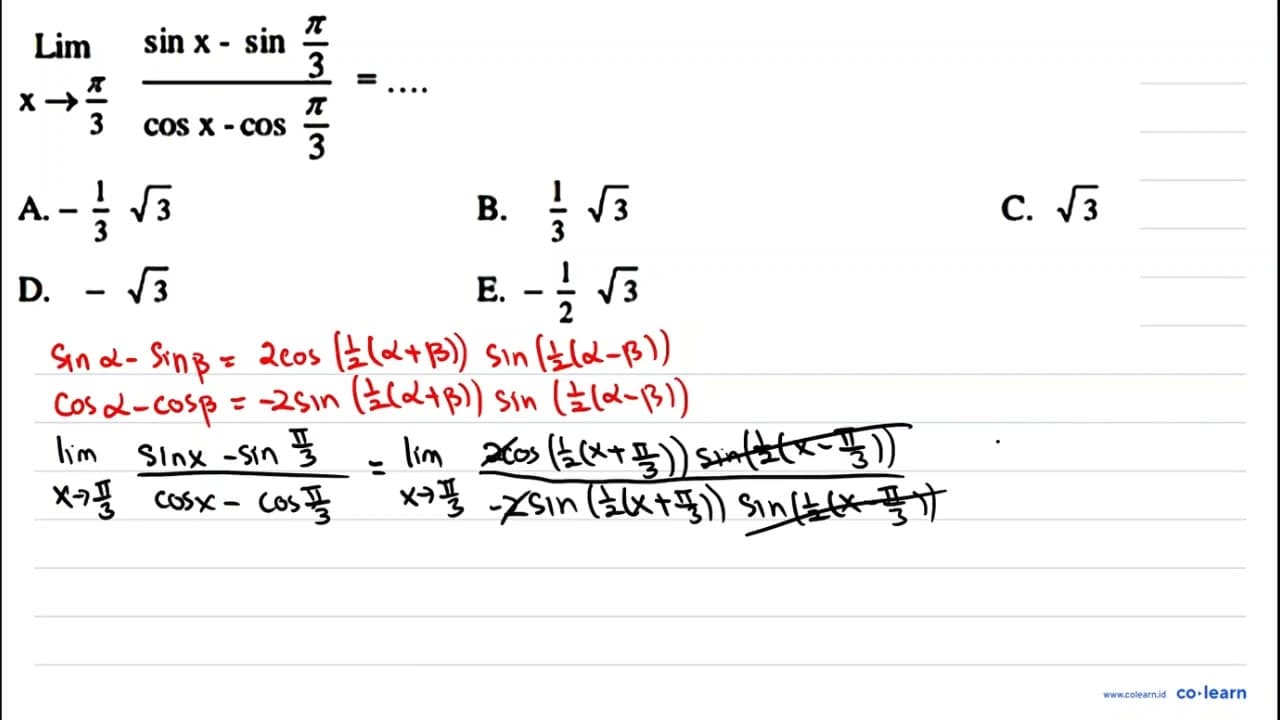 Lim x→π/3 (sin x - sin π/3)/(cos x - cos π/3) = ....
A. - 1/3 √3 B. 1/3 √3 C. √3
D. - √3 E. - 1/2 √3
sin α - sin β = 2cos (½(α+β)) sin (½(α-β))
cos α - cos β = -2sin (½(α+β)) sin (½(α-β))
lim x→π/3 (sin x - sin π/3)/(cos x - cos π/3) = lim x→π/3 (2cos (½(x+π/3)) sin(½(x-π/3)))/(-2sin (½(x+π/3)) sin(½(x-π/3)))
www.colearn.id co·learn